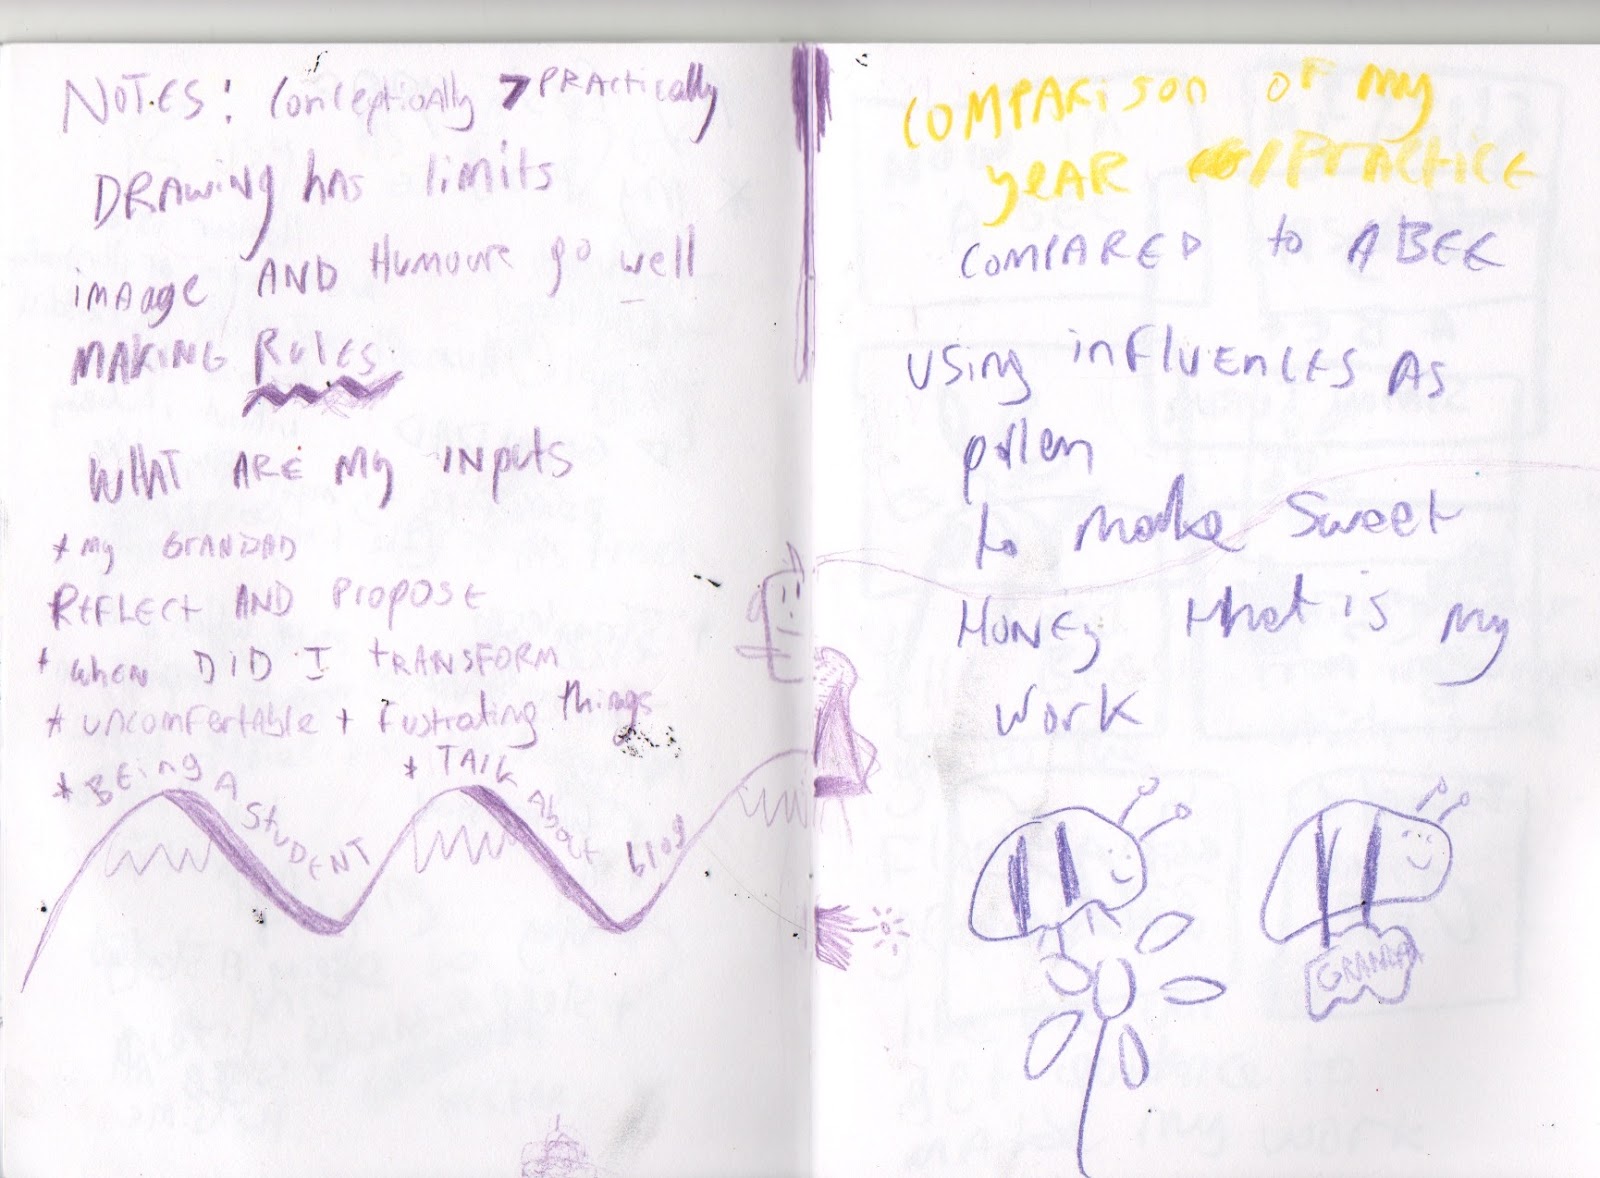 NOTES: Conceptionally > PRActically
DRAWing has limits
imAage AND Humoure go well
MAKING Rules
WHAT ARE My INputs
* my GrANDAD
REFLEct AND propose
* when DiD I tRANSFORM
* uncomfertable + fustrating things
* BEing A StuDENT
* TAlk About blog
COMPARison OF my
yeAR /PrActice
COMPARED to A BEE
using inFluences As
pollen
to make Sweet
HONEy that is my
work
GRANDPA